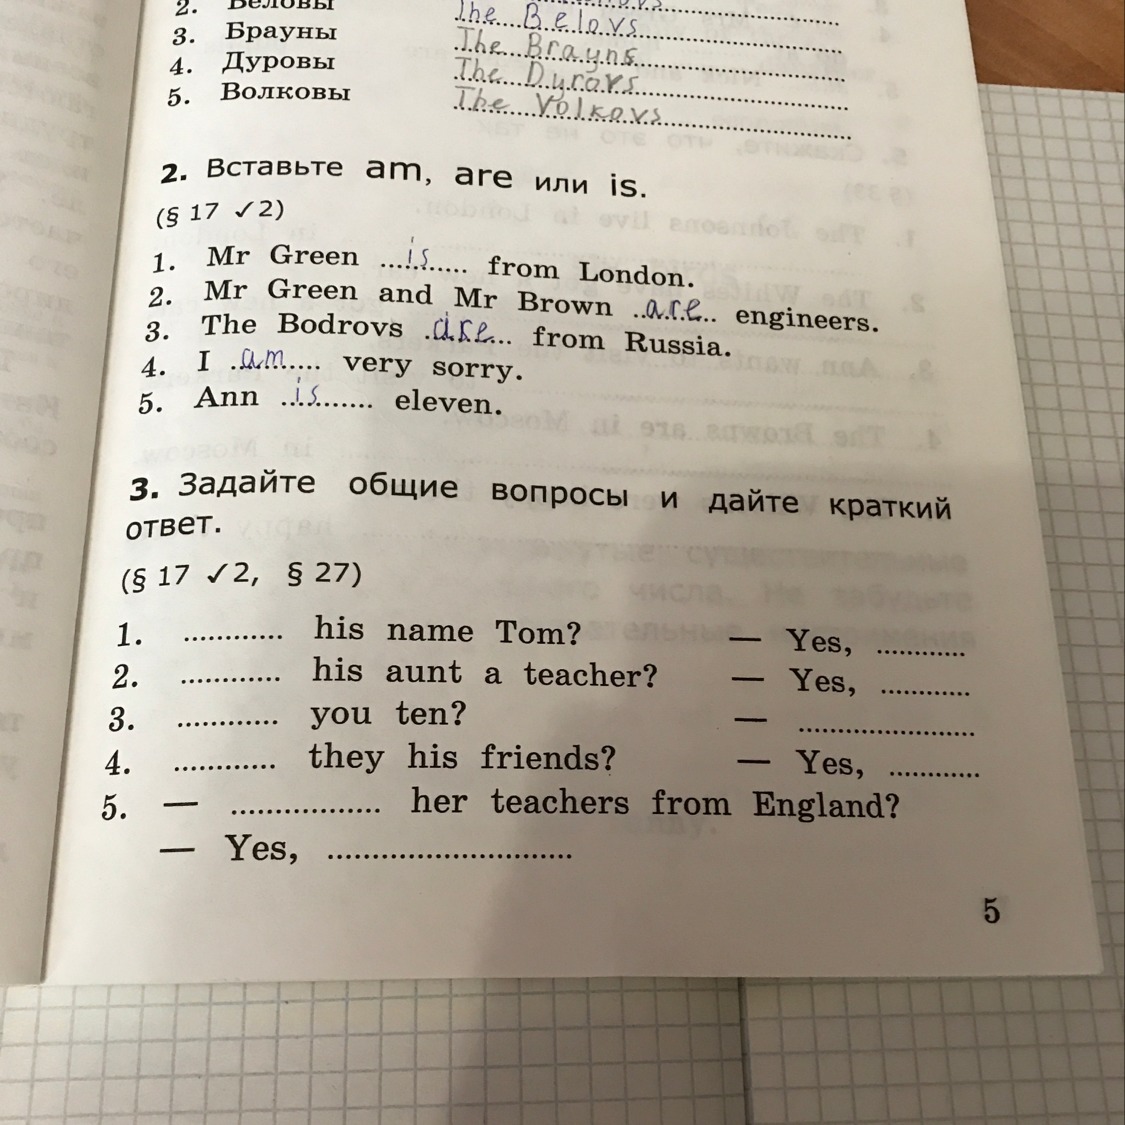 2. Беловы The Belovs
3. Брауны The Brayns
4. Дуровы The Dyrovs
5. Волковы The Volkovs
2. Вставьте am, are или is.
(§ 17 ✓2)
1. Mr Green ...is... from London.
2. Mr Green and Mr Brown ..are.. engineers.
3. The Bodrovs .are... from Russia.
4. I .am..... very sorry.
5. Ann ...is...... eleven.
3. Задайте общие вопросы и дайте краткий
ответ.
(§ 17 ✓2, § 27)
1. ............ his name Tom? — Yes, ...........
2. ............ his aunt a teacher? — Yes, ...........
3. ............ you ten? — ......................
4. ............ they his friends? — Yes, ...........
5. — .................. her teachers from England?
— Yes, .............................
5